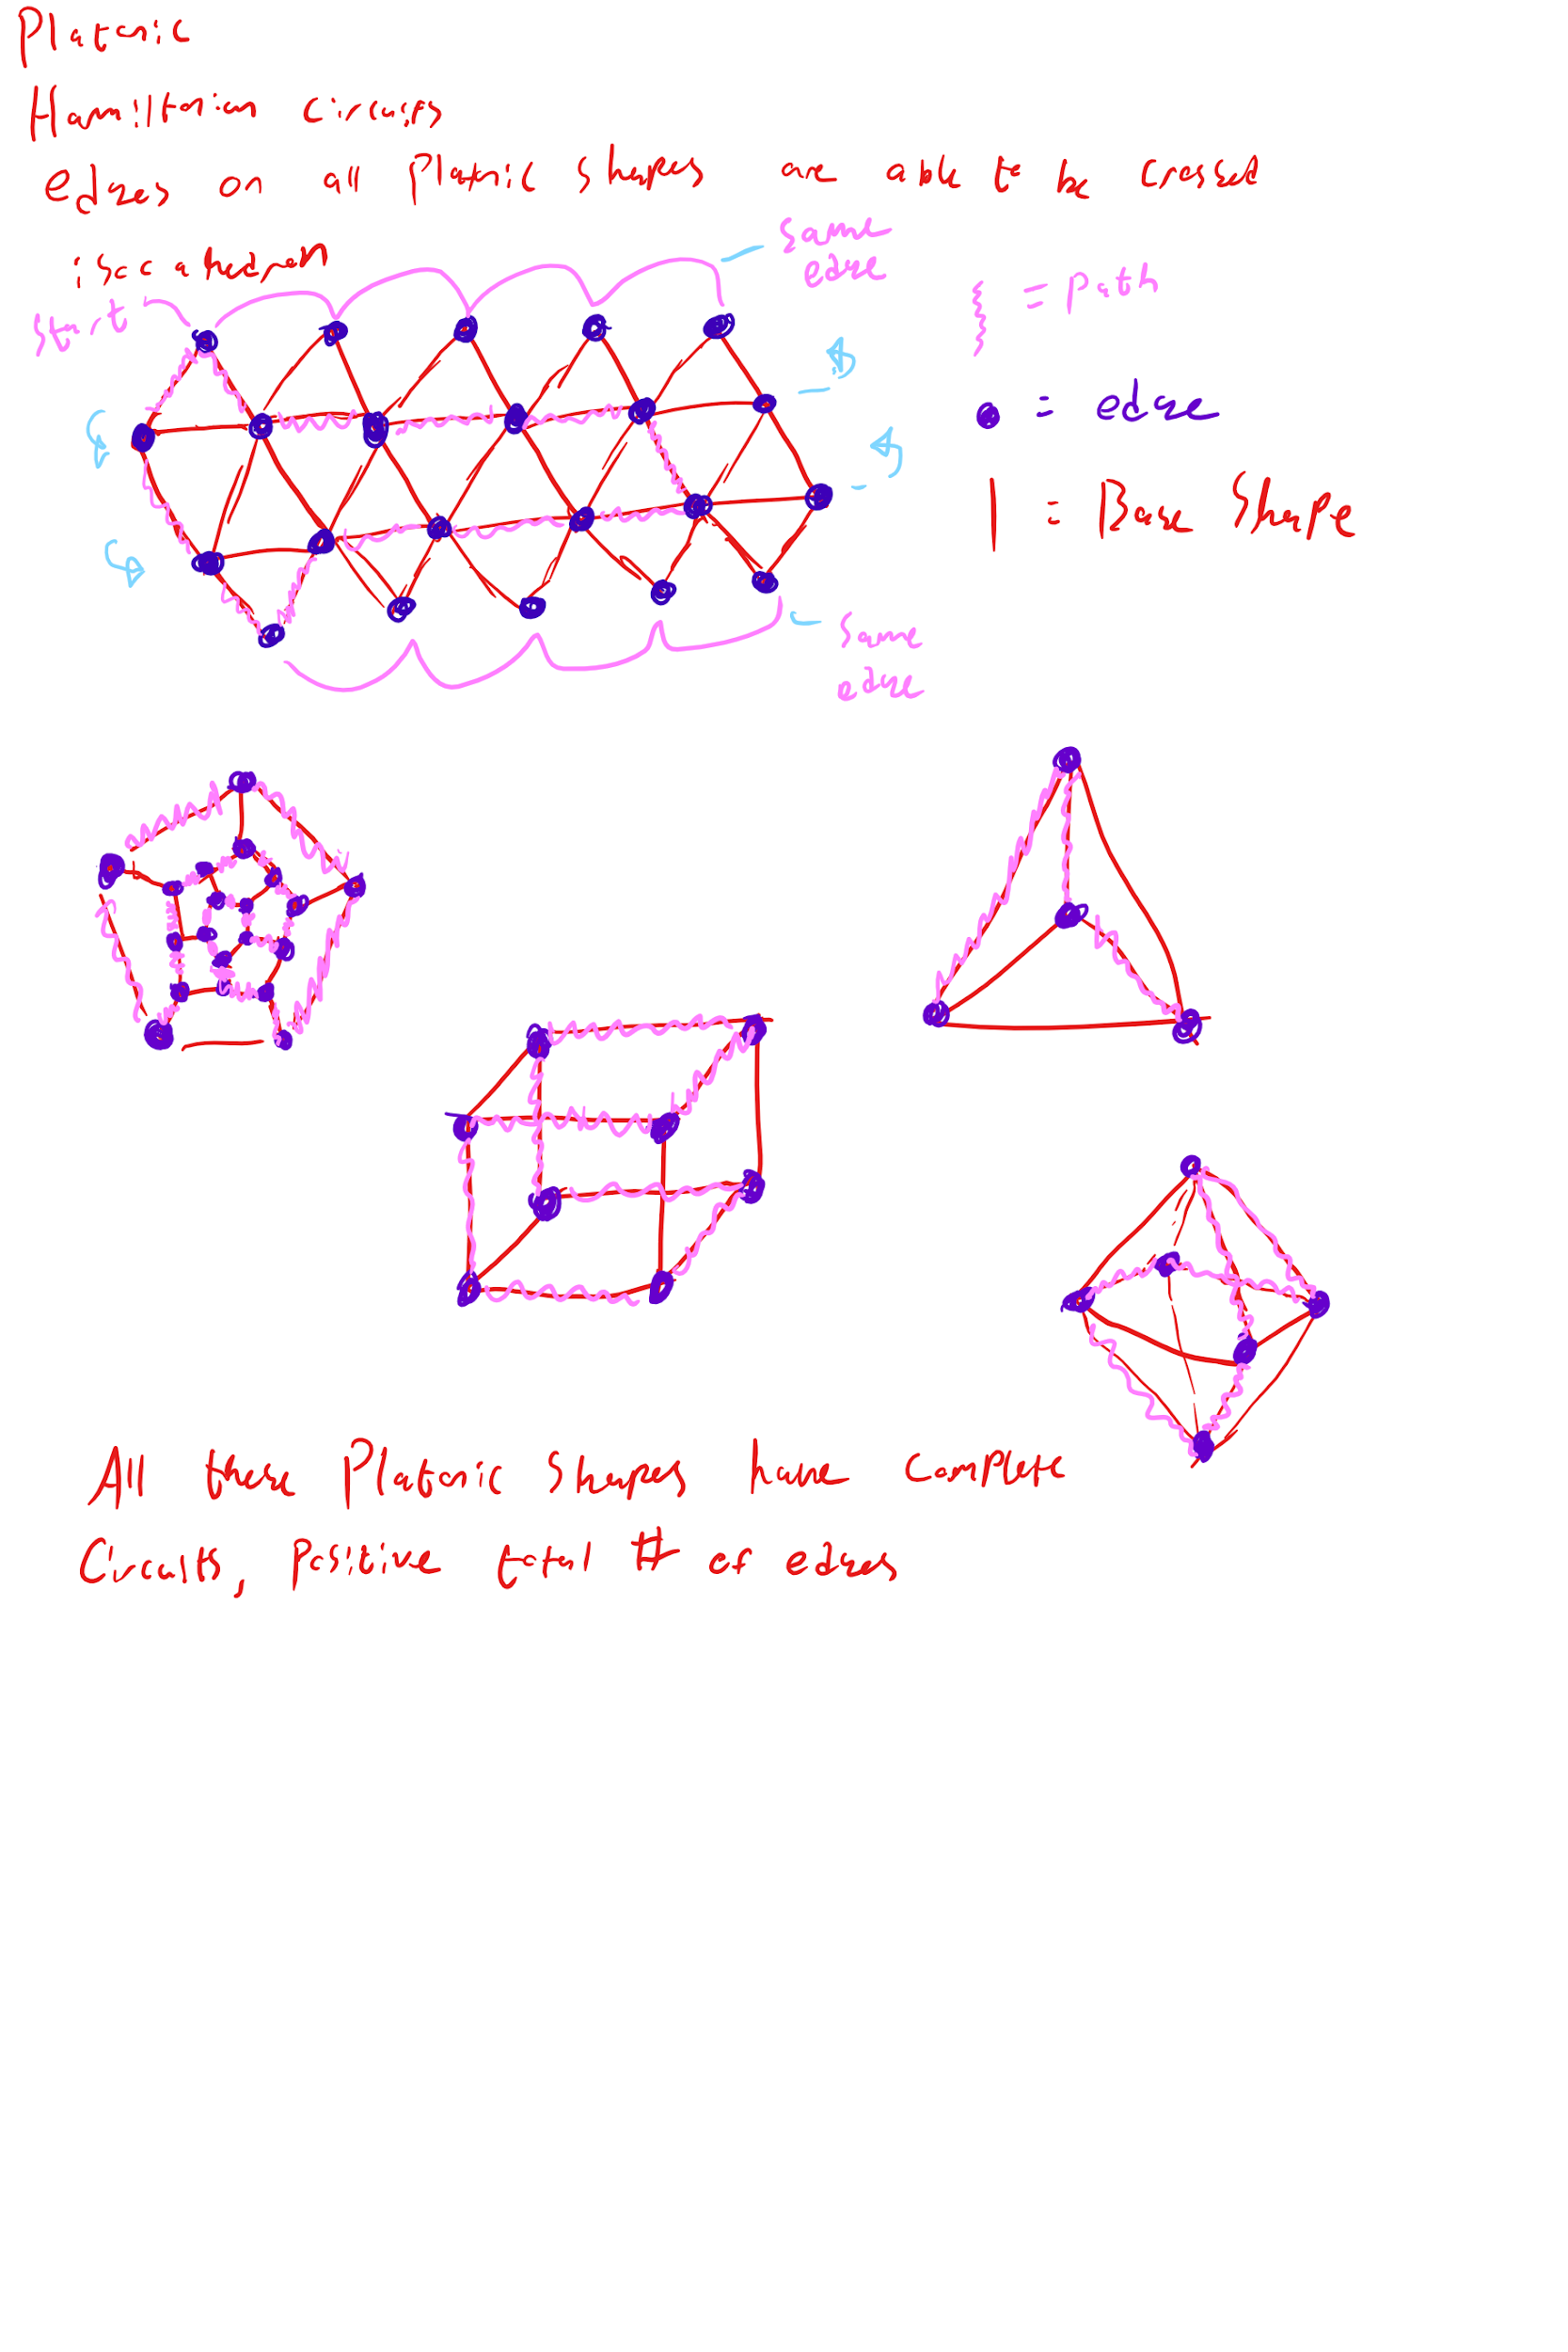 Platonic
Hamiltonian circuits
edges on all Platonic shapes are able to be crossed
isocahedron
start
same
edge
= Path
= edge
| = Base Shape
same
edge
All these Platonic Shapes have complete
Circuits, positive total # of edges